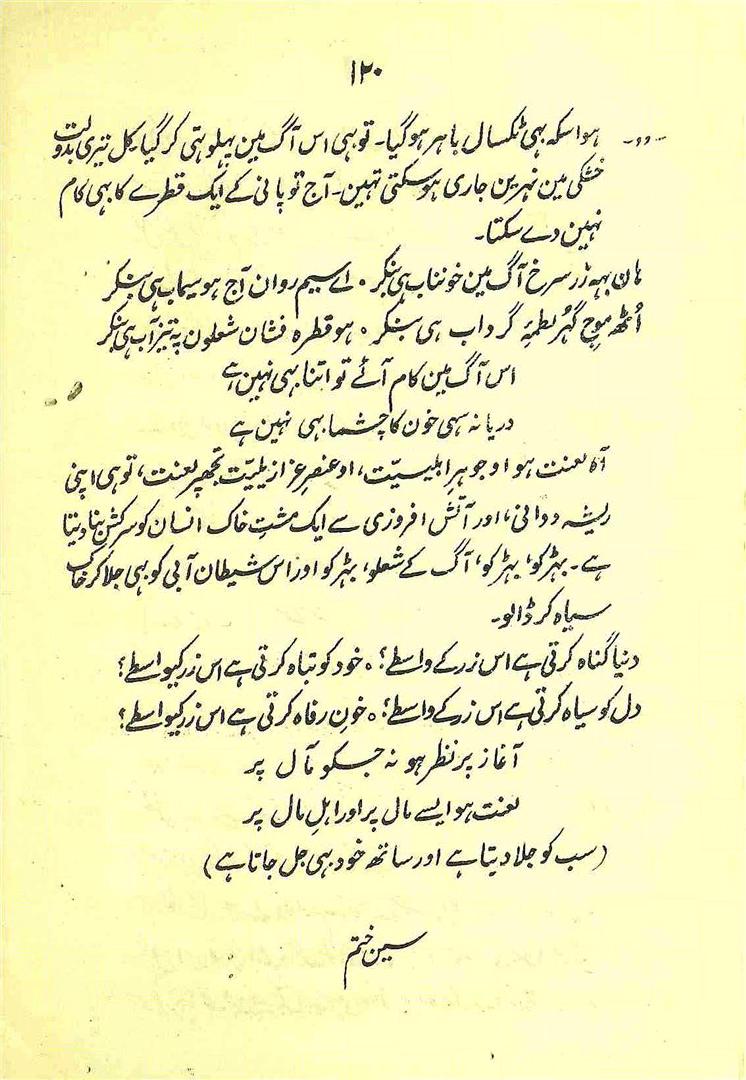 ۱۲۰
ہوا سکہ بہی ٹکسال باہر ہوگیا۔ تو بہی اس آگ مین پہلو تہی کر گیا کل تیری بدولت
خشکی مین نہرین جاری ہوسکتی تہین۔ آج تو پانی کے ایک قطرے کا بہی کام
نہین دے سکتا۔
ہان بہہ زر سرخ آگ مین خونناب ہی بنکر ٭ اے سیم روان آج ہو سیماب ہی بنکر
اُٹھ موجِ گہُر لطمۂ گرداب ہی بنکر ٭ ہو قطرہ فشان شعلون پہ تیزآب ہی بنکر
اس آگ مین کام آئے تو اتنا بہی نہین ہے
دریا نہ سہی خون کا چشما بہی نہین ہے
آہ لعنت ہو او جوہرِ ابلیسیّت، او عنصرِ عزازیلیّت تجھپر لعنت، تو ہی اپنی
ریشہ دوانی، اور آتش افروزی سے ایک مشتِ خاک انسان کو سرکش بنا دیتا
ہے۔ بہڑکو، بہڑکو، آگ کے شعلو، بہڑکو اور اس شیطان آبی کو بہی جلا کر خاک
سیاہ کر ڈالو۔
دنیا گناہ کرتی ہے اس زر کے واسطے؟ ٭ خود کو تباہ کرتی ہے اس زر کیواسطے؟
دل کو سیاہ کرتی ہے اس زر کے واسطے؟ ٭ خونِ رفاہ کرتی ہے اس زر کیواسطے؟
آغاز پر نظر ہو نہ جسکو مآل پر
لعنت ہو ایسے مال پر اور اہلِ مال پر
(سب کو جلا دیتا ہے اور ساتھ خود بہی جل جاتا ہے)
سین ختم